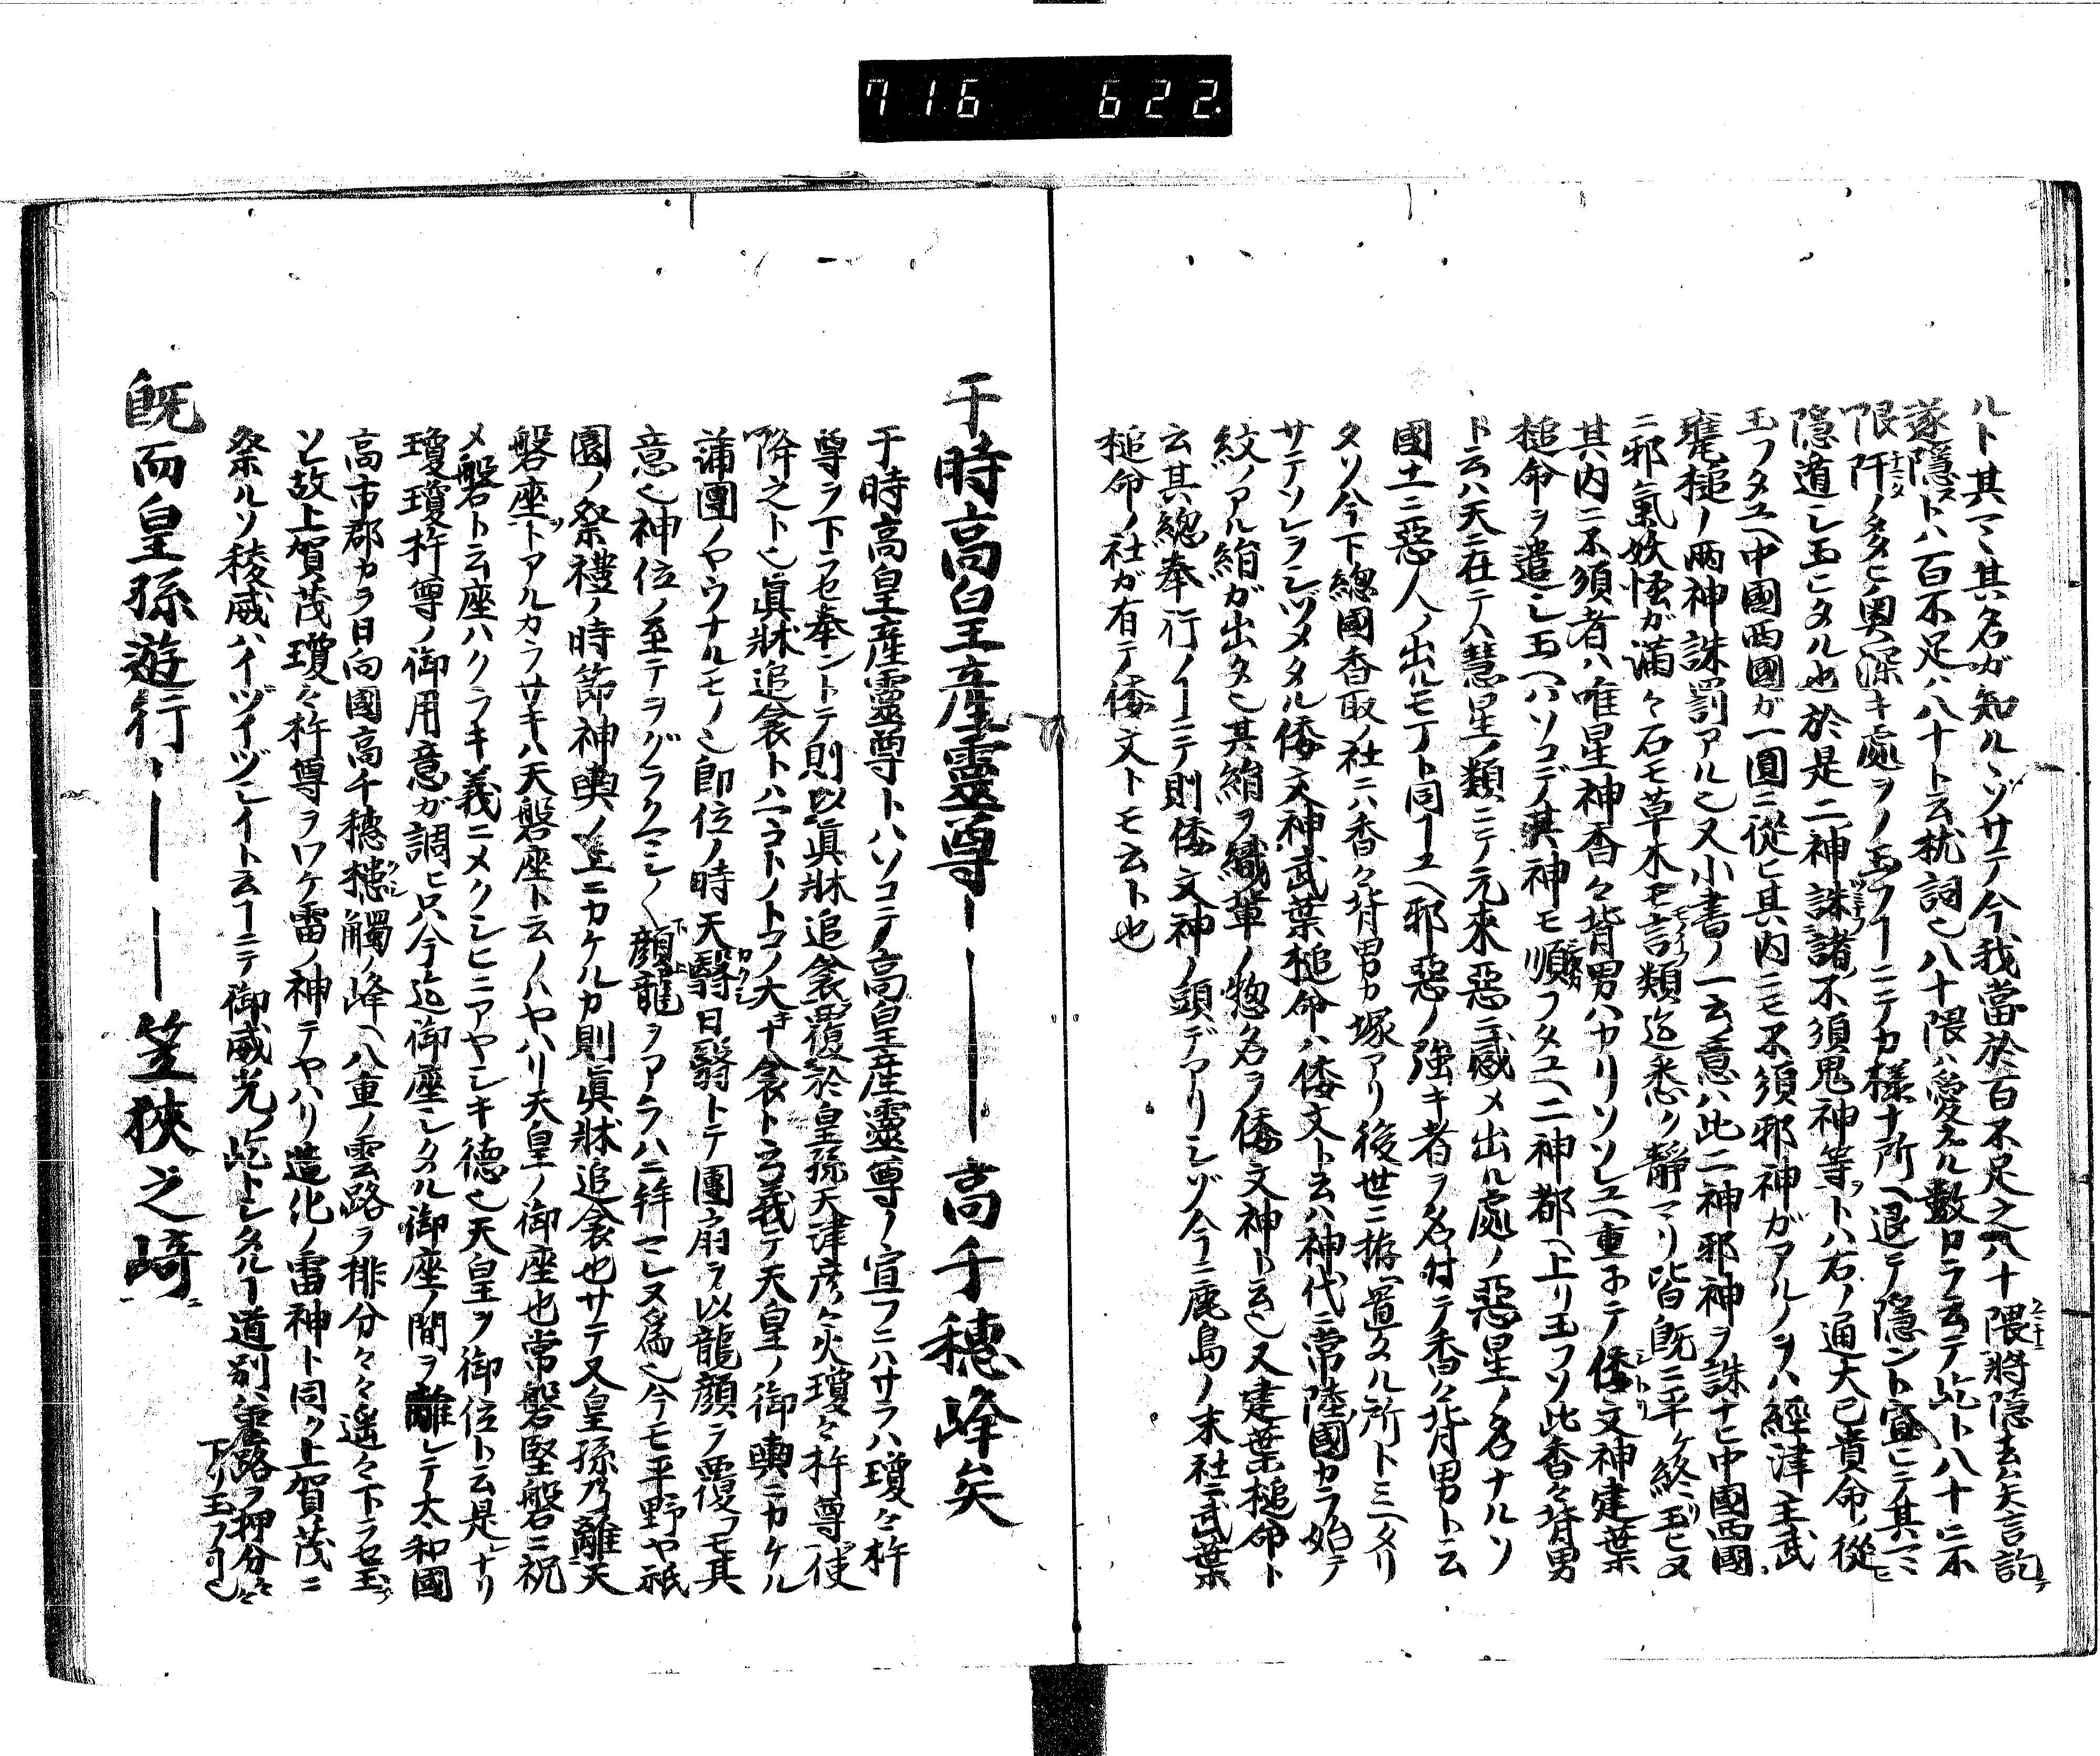 716 622
ルト其マヽ其名ガ知ルヽゾサテ今我當於百不足之八十隈將隱去矣言訖
遂隱ストハ百不足ハ八十ト云枕詞也八十隈ハ愛スル數カラ云テ此ト八十ニ不
限阡ノタタヒ奧深キ處ヲノ玉フヿニテカ樣ナ所ヘ退テ隱ント宣ヒテ其マヽ
隱遁シ玉ヒタル也於是二神誅諸不須鬼神等ヲトハ右ノ通大己貴命ノ從ヒ
玉フタユヘ中國西國ガ一圓ニ從ヒ其内ニモ不須邪神ガアルノヲハ經津主武
甕槌ノ兩神誅罰アル也又小書ノ一云意ハ此二神邪神ヲ誅ナヒ中國西國
ニ邪氣妖怪ガ滿々石モ草木モ言類迄悉ク靜マリ皆既ニ平ケ終ニ玉ヒヌ
其内ニ不須者ハ唯星神香々背男ハカリソソレユヘ重子テ倭文神建葉
槌命ヲ遣シ玉ヘハソコデ其神モ順フタユヘ二神都ヘ上リ玉フソ此香々背男
ト云ハ天ニ在テハ彗星ノ類ニテ元來惡ニ感メ出ル處ノ惡星ノ名ナルソ
國土ニ惡人ノ出ルモ丁ト同ヿユヘ邪惡ノ強キ者ヲ名付テ香々背男ト云
タソ今下總國香取ノ社ニハ香々背男カ塚アリ後世ニ拵置タル所ト三ヘタリ
サテソレヲシヅメタル倭文神武葉槌命ハ倭文ト云ハ神代ニ常陸國カラ始テ
紋ノアル絹ガ出タ也其絹ヲ織輩ノ惣名ヲ倭文神ト云也又建葉槌命ト
云其總奉行ノヿニテ則倭文神ノ頭デアリシゾ今ニ鹿島ノ末社ニ武葉
槌命ノ社ガ有テ倭文トモ云ト也
于時高皇産靈尊――――高千穗峰矣
于時高皇産靈尊トハソコテ高皇産靈尊ノ宣フニハサラハ瓊々杵
尊ヲ下ラセ奉ントテ則以眞牀追衾覆於皇孫天津彦々火瓊々杵尊使
降之ト也眞牀追衾トハマコトノトコノ大ナ衾ト云義テ天皇ノ御輿ニカケル
蒲團ノヤウナルモノ也即位ノ時天翳日翳トテ團扇ヲ以龍顏ヲ覆フモ其
意也神位ノ至テヲグラクマシ〱顏龍ヲアラハニ拜マレヌ爲也今モ平野ヤ祇
園ノ祭禮ノ時節神輿ノ上ニカケルカ則眞牀追衾也サテ又皇孫乃離天
磐座トアルカラサキハ天磐座ト云ノハヤハリ天皇ノ御座也常磐堅磐ニ祝
メ磐ト云座ハクラキ義ニメクシヒニアヤシキ德也天皇ヲ御位ト云是ナリ
瓊瓊杵尊ノ御用意ガ調ヒ只今迄御座シタル御座ノ間ヲ離レテ太和國
高市郡カラ日向國高千穗槵觸ノ峰ヘ八重ノ雲路ヲ排分々々遙々下ラセ玉フ
ソ故上賀茂瓊々杵尊ヲワケ雷ノ神テヤハリ造化ノ雷神ト同ク上賀茂ニ
祭ルソ稜威ハイヅイヅシイト云ヿニテ御威光ノ此トシタルヿ道別ハ雲路ヲ押分々々
下リ玉ノヿ也
既而皇孫遊行―――笠狹之崎